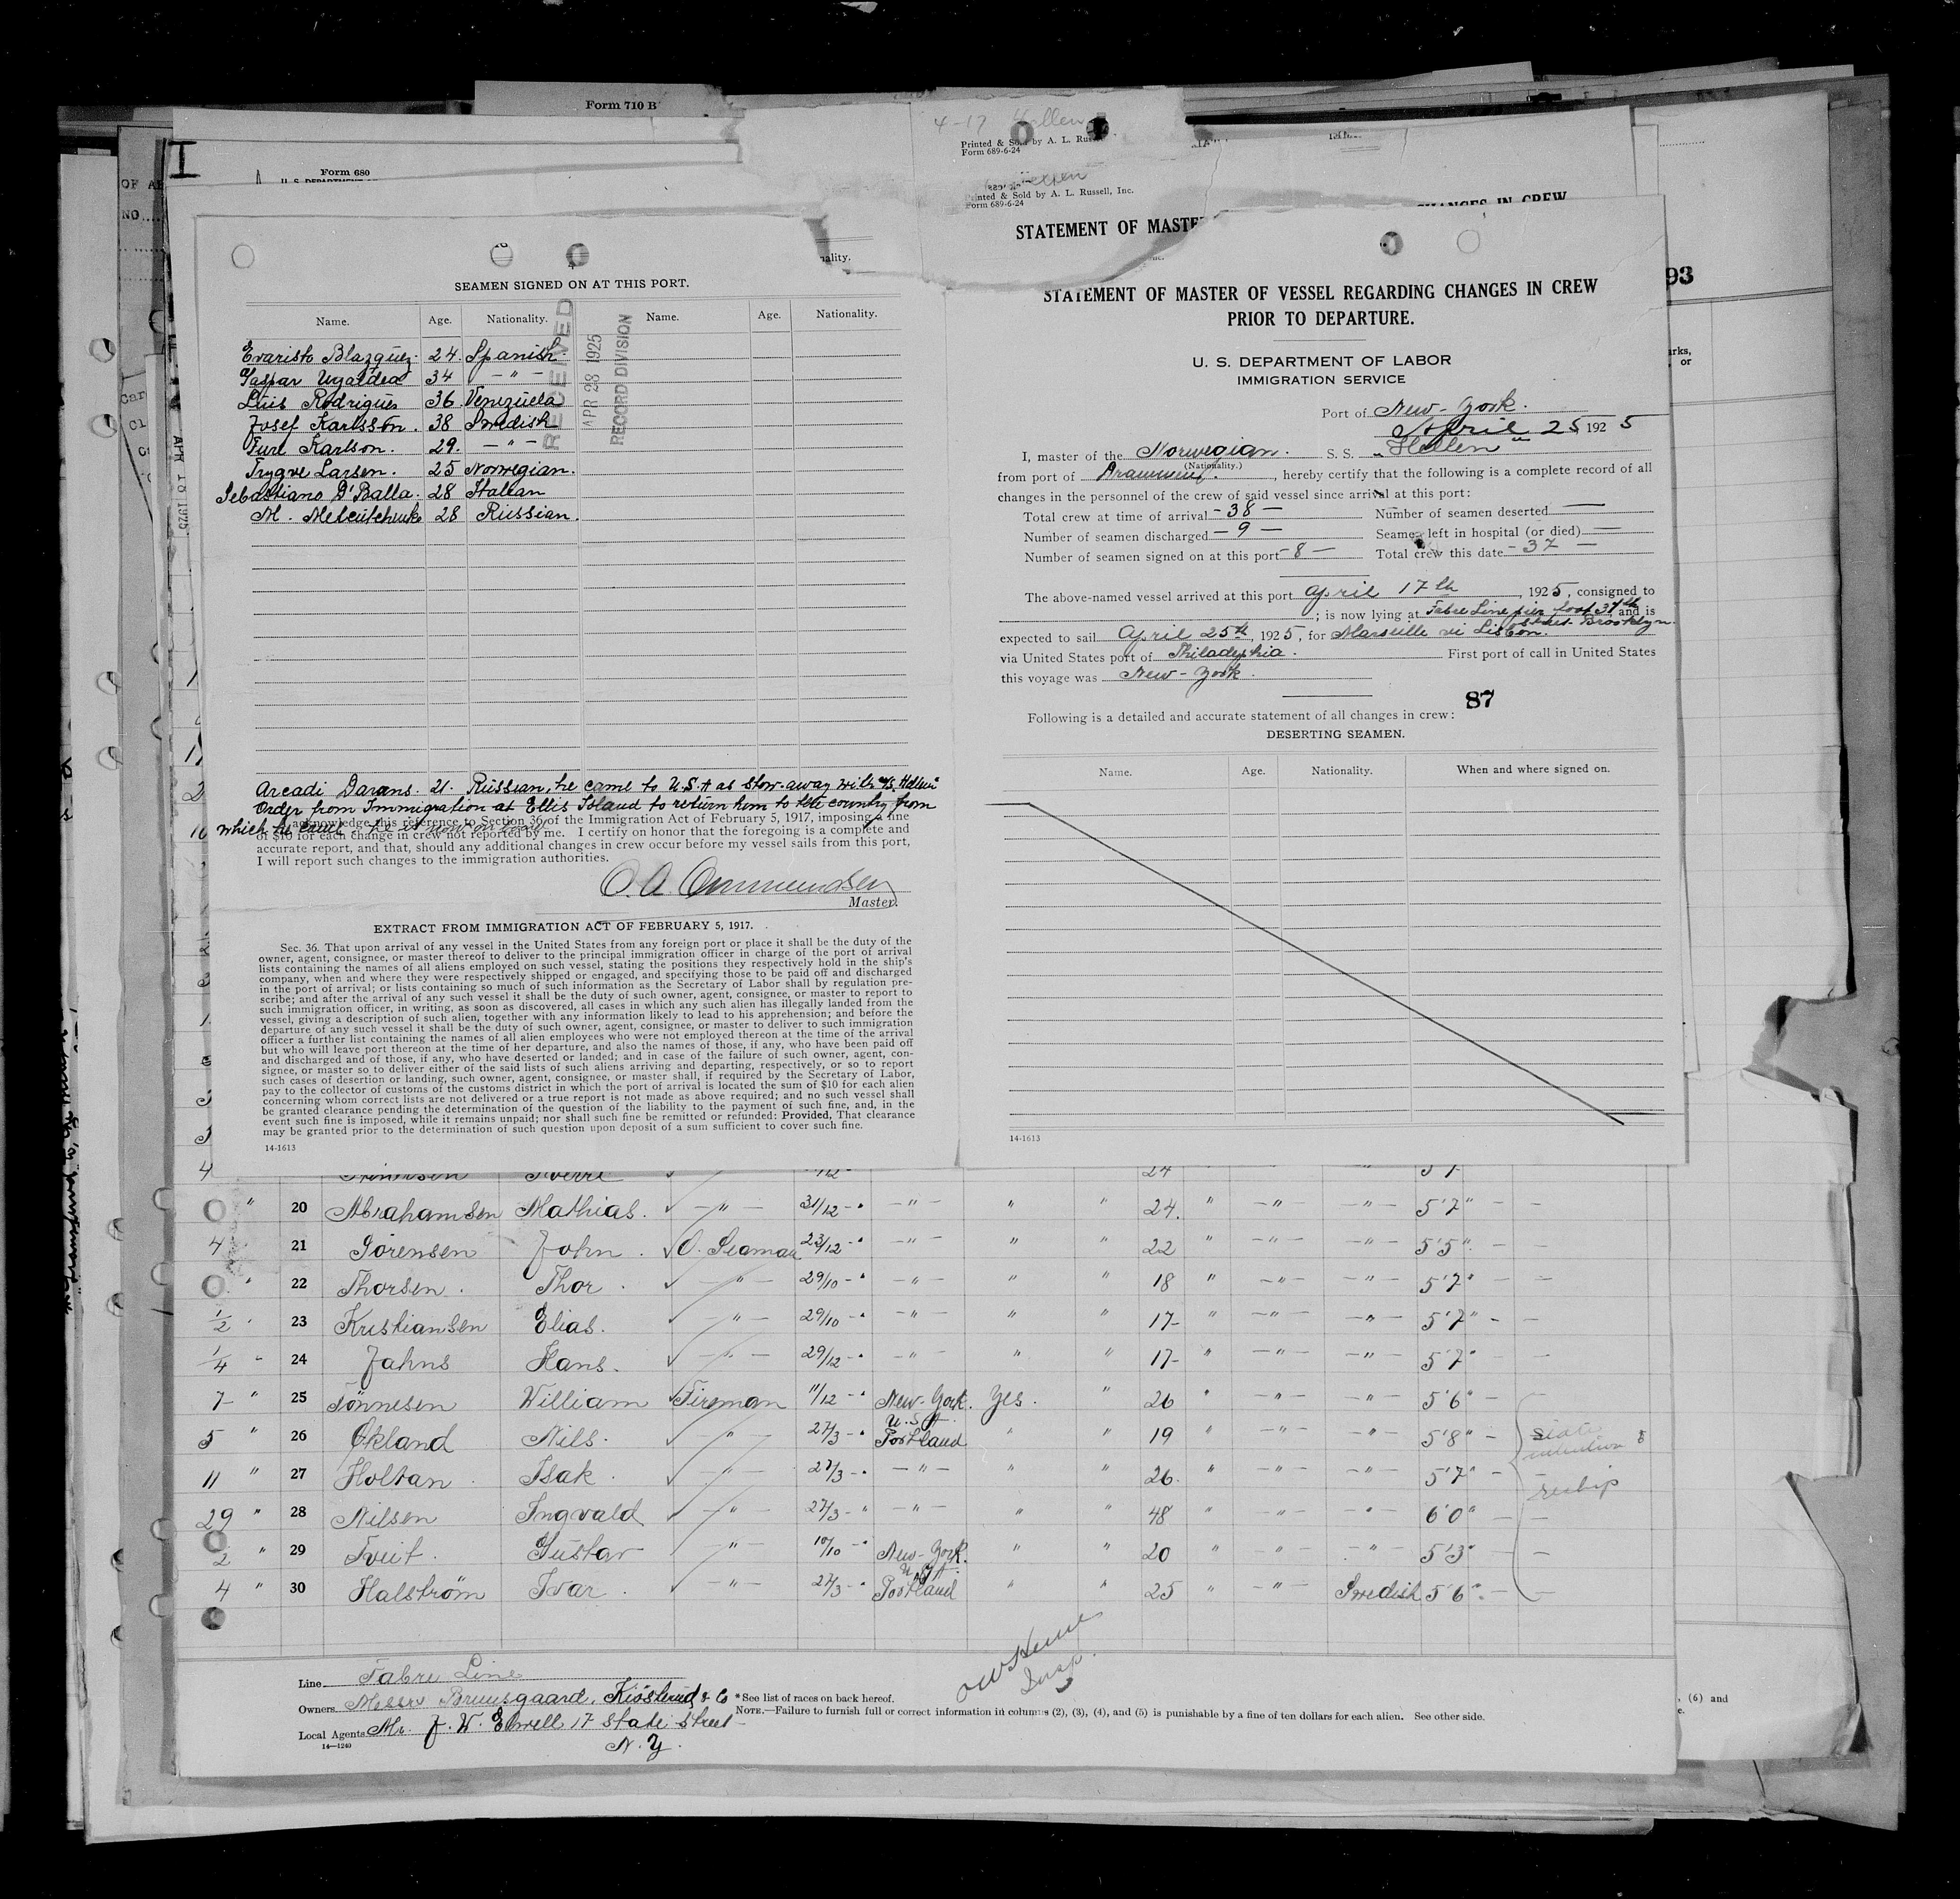 Form 710 B
4-17 Hellen
Printed & Sold by A. L. Russ
Form 689-6-24
I
Form 680
U. S. DEPARTMENT
OF
NO
Printed & Sold by A. L. Russell, Inc.
Form 689-6-24
STATEMENT OF MASTE
CHANGES IN CREW
93
ality.
SEAMEN SIGNED ON AT THIS PORT.
Name. Age. Nationality. Name. Age. Nationality.
Evaristo Blazquez. 24. Spanish.
Gaspar Ugaldea 34 — " —
Luis Rodrigues 36. Venezuela
Josef Karlsson. 38 Swedish
Karlson. 29. — " —
Trygve Larsen. 25 Norwegian.
Sebastiano D'Balla. 28 Italian
M. 28 Russian.
RECEIVED
APR 28 1925
RECORD DIVISION
Arcadi Darans. 21. Russian, he came to U.S.A as stow-away with
Order from Immigration at Ellis Island to return him to the country from
which he came - he is now on board
acknowledge this reference to Section 36 of the Immigration Act of February 5, 1917, imposing a fine
of $10 for each change in crew not reported by me. I certify on honor that the foregoing is a complete and
accurate report, and that, should any additional changes in crew occur before my vessel sails from this port,
I will report such changes to the immigration authorities.
O. A. Ommundsen
Master.
EXTRACT FROM IMMIGRATION ACT OF FEBRUARY 5, 1917.
Sec. 36. That upon arrival of any vessel in the United States from any foreign port or place it shall be the duty of the
owner, agent, consignee, or master thereof to deliver to the principal immigration officer in charge of the port of arrival
lists containing the names of all aliens employed on such vessel, stating the positions they respectively hold in the ship's
company, when and where they were respectively shipped or engaged, and specifying those to be paid off and discharged
in the port of arrival; or lists containing so much of such information as the Secretary of Labor shall by regulation pre-
scribe; and after the arrival of any such vessel it shall be the duty of such owner, agent, consignee, or master to report to
such immigration officer, in writing, as soon as discovered, all cases in which any such alien has illegally landed from the
vessel, giving a description of such alien, together with any information likely to lead to his apprehension; and before the
departure of any such vessel it shall be the duty of such owner, agent, consignee, or master to deliver to such immigration
officer a further list containing the names of all alien employees who were not employed thereon at the time of the arrival
but who will leave port thereon at the time of her departure, and also the names of those, if any, who have been paid off
and discharged and of those, if any, who have deserted or landed; and in case of the failure of such owner, agent, con-
signee, or master so to deliver either of the said lists of such aliens arriving and departing, respectively, or so to report
such cases of desertion or landing, such owner, agent, consignee, or master shall, if required by the Secretary of Labor,
pay to the collector of customs of the customs district in which the port of arrival is located the sum of $10 for each alien
concerning whom correct lists are not delivered or a true report is not made as above required; and no such vessel shall
be granted clearance pending the determination of the question of the liability to the payment of such fine, and, in the
event such fine is imposed, while it remains unpaid; nor shall such fine be remitted or refunded: Provided, That clearance
may be granted prior to the determination of such question upon deposit of a sum sufficient to cover such fine.
14-1613
STATEMENT OF MASTER OF VESSEL REGARDING CHANGES IN CREW
PRIOR TO DEPARTURE.
U. S. DEPARTMENT OF LABOR
IMMIGRATION SERVICE
Port of New-York.
April 25, 1925
I, master of the Norwegian. S. S. "Hellen"
(Nationality.)
from port of , hereby certify that the following is a complete record of all
changes in the personnel of the crew of said vessel since arrival at this port:
Total crew at time of arrival - 38 — Number of seamen deserted —
Number of seamen discharged — 9 — Seamen left in hospital (or died) —
Number of seamen signed on at this port - 8 — Total crew this date - 37 —
The above-named vessel arrived at this port april 17th, 1925, consigned to
; is now lying at Fabre Line pier foot 31th, and is
street Brooklyn.
expected to sail April 25th, 1925, for Marseille vi Lisbon.
via United States port of Philadephia. First port of call in United States
this voyage was New-York.
87
Following is a detailed and accurate statement of all changes in crew:
DESERTING SEAMEN.
Name. Age. Nationality. When and where signed on.
14-1613
20 Abrahamsen Mathias. — " — 31/12 - " — " — " " 24. " — " — — " — 5'7" — —
4 21 Sörensen John. O. Seaman 23/12 - " — " — " " 22 " — " — — " — 5'5" — —
22 Thorsen. Thor. — " — 29/10 - " — " — " " 18 " — " — — " — 5'7" — —
1/2 23 Kristiansen Elias. — " — 29/10 - " — " — " " 17 " — " — — " — 5'7" - —
1/4 24 Jahns Hans. — " — 29/12 - " — " — " " 17 " — " — — " — 5'7" — —
7 " 25 Tönnesen William Fireman 11/12 - " New-York. Yes. " 26 " — " — — " — 5'6" — —
U.S.A.
5 " 26 Økland Nils. — " — 27/3 - " Portland " " 19 " — " — — " — 5'8" —
11 " 27 Holtan. Isak. — " — 27/3 - " — " — " " 26. " — " — — " — 5'7" — —
reship
29 " 28 Nilsen Ingvald — " — 27/3 - " — " — " " 48 " — " — — " — 6'0" — —
2 " 29 Tveit. Gustav — " — 10/10 - " New-York. " " 20 " — " — — " — 5'3" — —
4 " 30 Halström Ivar. — " — 27/3 - " Portland " " 25 " — " — Swedish 5'6" — —
Insp.
Line Fabre Line
Owners Messrs Bruusgaard, Kiösterud & Co
*See list of races on back hereof.
NOTE.—Failure to furnish full or correct information in columns (2), (3), (4), and (5) is punishable by a fine of ten dollars for each alien. See other side.
Local Agents Mr. J. W. Elwell 17 State Street -
N. Y.
14—1240
(6) and